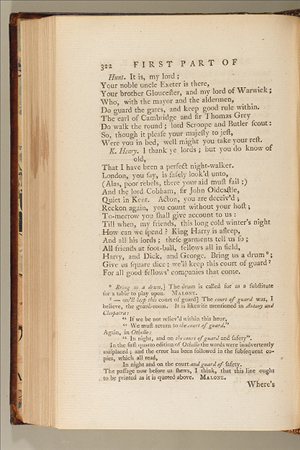 322 FIRST PART OF
Hunt. It is, my lord;
Your noble uncle Exeter is there,
Your brother Glouceſter, and my lord of Warwick;
Who, with the mayor and the aldermen,
Do guard the gates, and keep good rule within.
The earl of Cambridge and ſir Thomas Grey
Do walk the round; lord Scroope and Butler ſcout:
So, though it pleaſe your majeſty to jeſt,
Were you in bed, well might you take your reſt.
K. Henry. I thank ye lords; but you do know of
old,
That I have been a perfect night-walker.
London, you ſay, is ſafely look'd unto,
(Alas, poor rebels, there your aid muſt fail;)
And the lord Cobham, ſir John Oldcaſtle,
Quiet in Kent. Acton, you are deceiv'd;
Reckon again, you count without your hoſt;
To-morrow you ſhall give account to us:
Till when, my friends, this long cold winter's night
How can we ſpend? King Harry is aſleep,
And all his lords; theſe garments tell us ſo;
All friends at foot-ball, fellows all in field,
Harry, and Dick, and George. Bring us a drum⁶;
Give us ſquare dice; we'll keep this court of guard⁷
For all good fellows' companies that come.
⁶ Bring us a drum,] The drum is called for as a ſubſtitute
for a table to play upon. MALONE.
⁷ — we'll keep this court of guard] The court of guard was, I
believe, the guard-room. It is likewiſe mentioned in Antony and
Cleopatra:
"If we be not reliev'd within this hour,
"We muſt return to the court of guard."
Again, in Othello:
"In night, and on the court of guard and ſafety".
In the firſt quarto edition of Othello the words were inadvertently
miſplaced; and the error has been followed in the ſubſequent co-
pies, which all read,
In night and on the court and guard of ſafety.
The paſſage now before us ſhews, I think, that this line ought
to be printed as it is quoted above. MALONE.
Where's